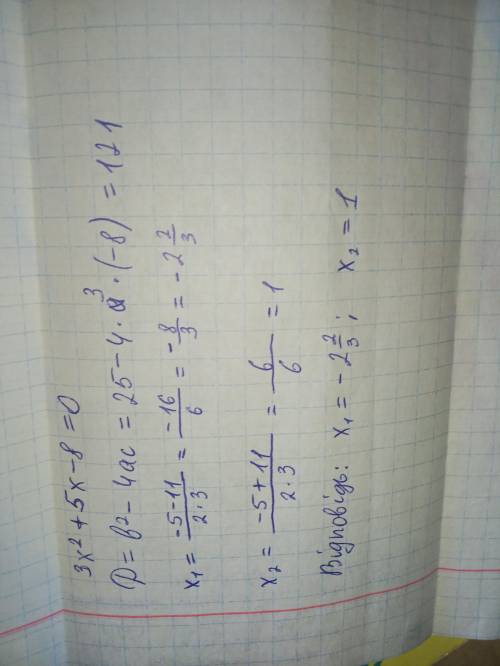 3x² + 5x - 8 = 0
D = b² - 4ac = 25 - 4 · 3 · (-8) = 121
x₁ = (-5 - 11)/(2 · 3) = -16/6 = -8/3 = -2 2/3
x₂ = (-5 + 11)/(2 · 3) = 6/6 = 1
Відповідь: x₁ = -2 2/3; x₂ = 1